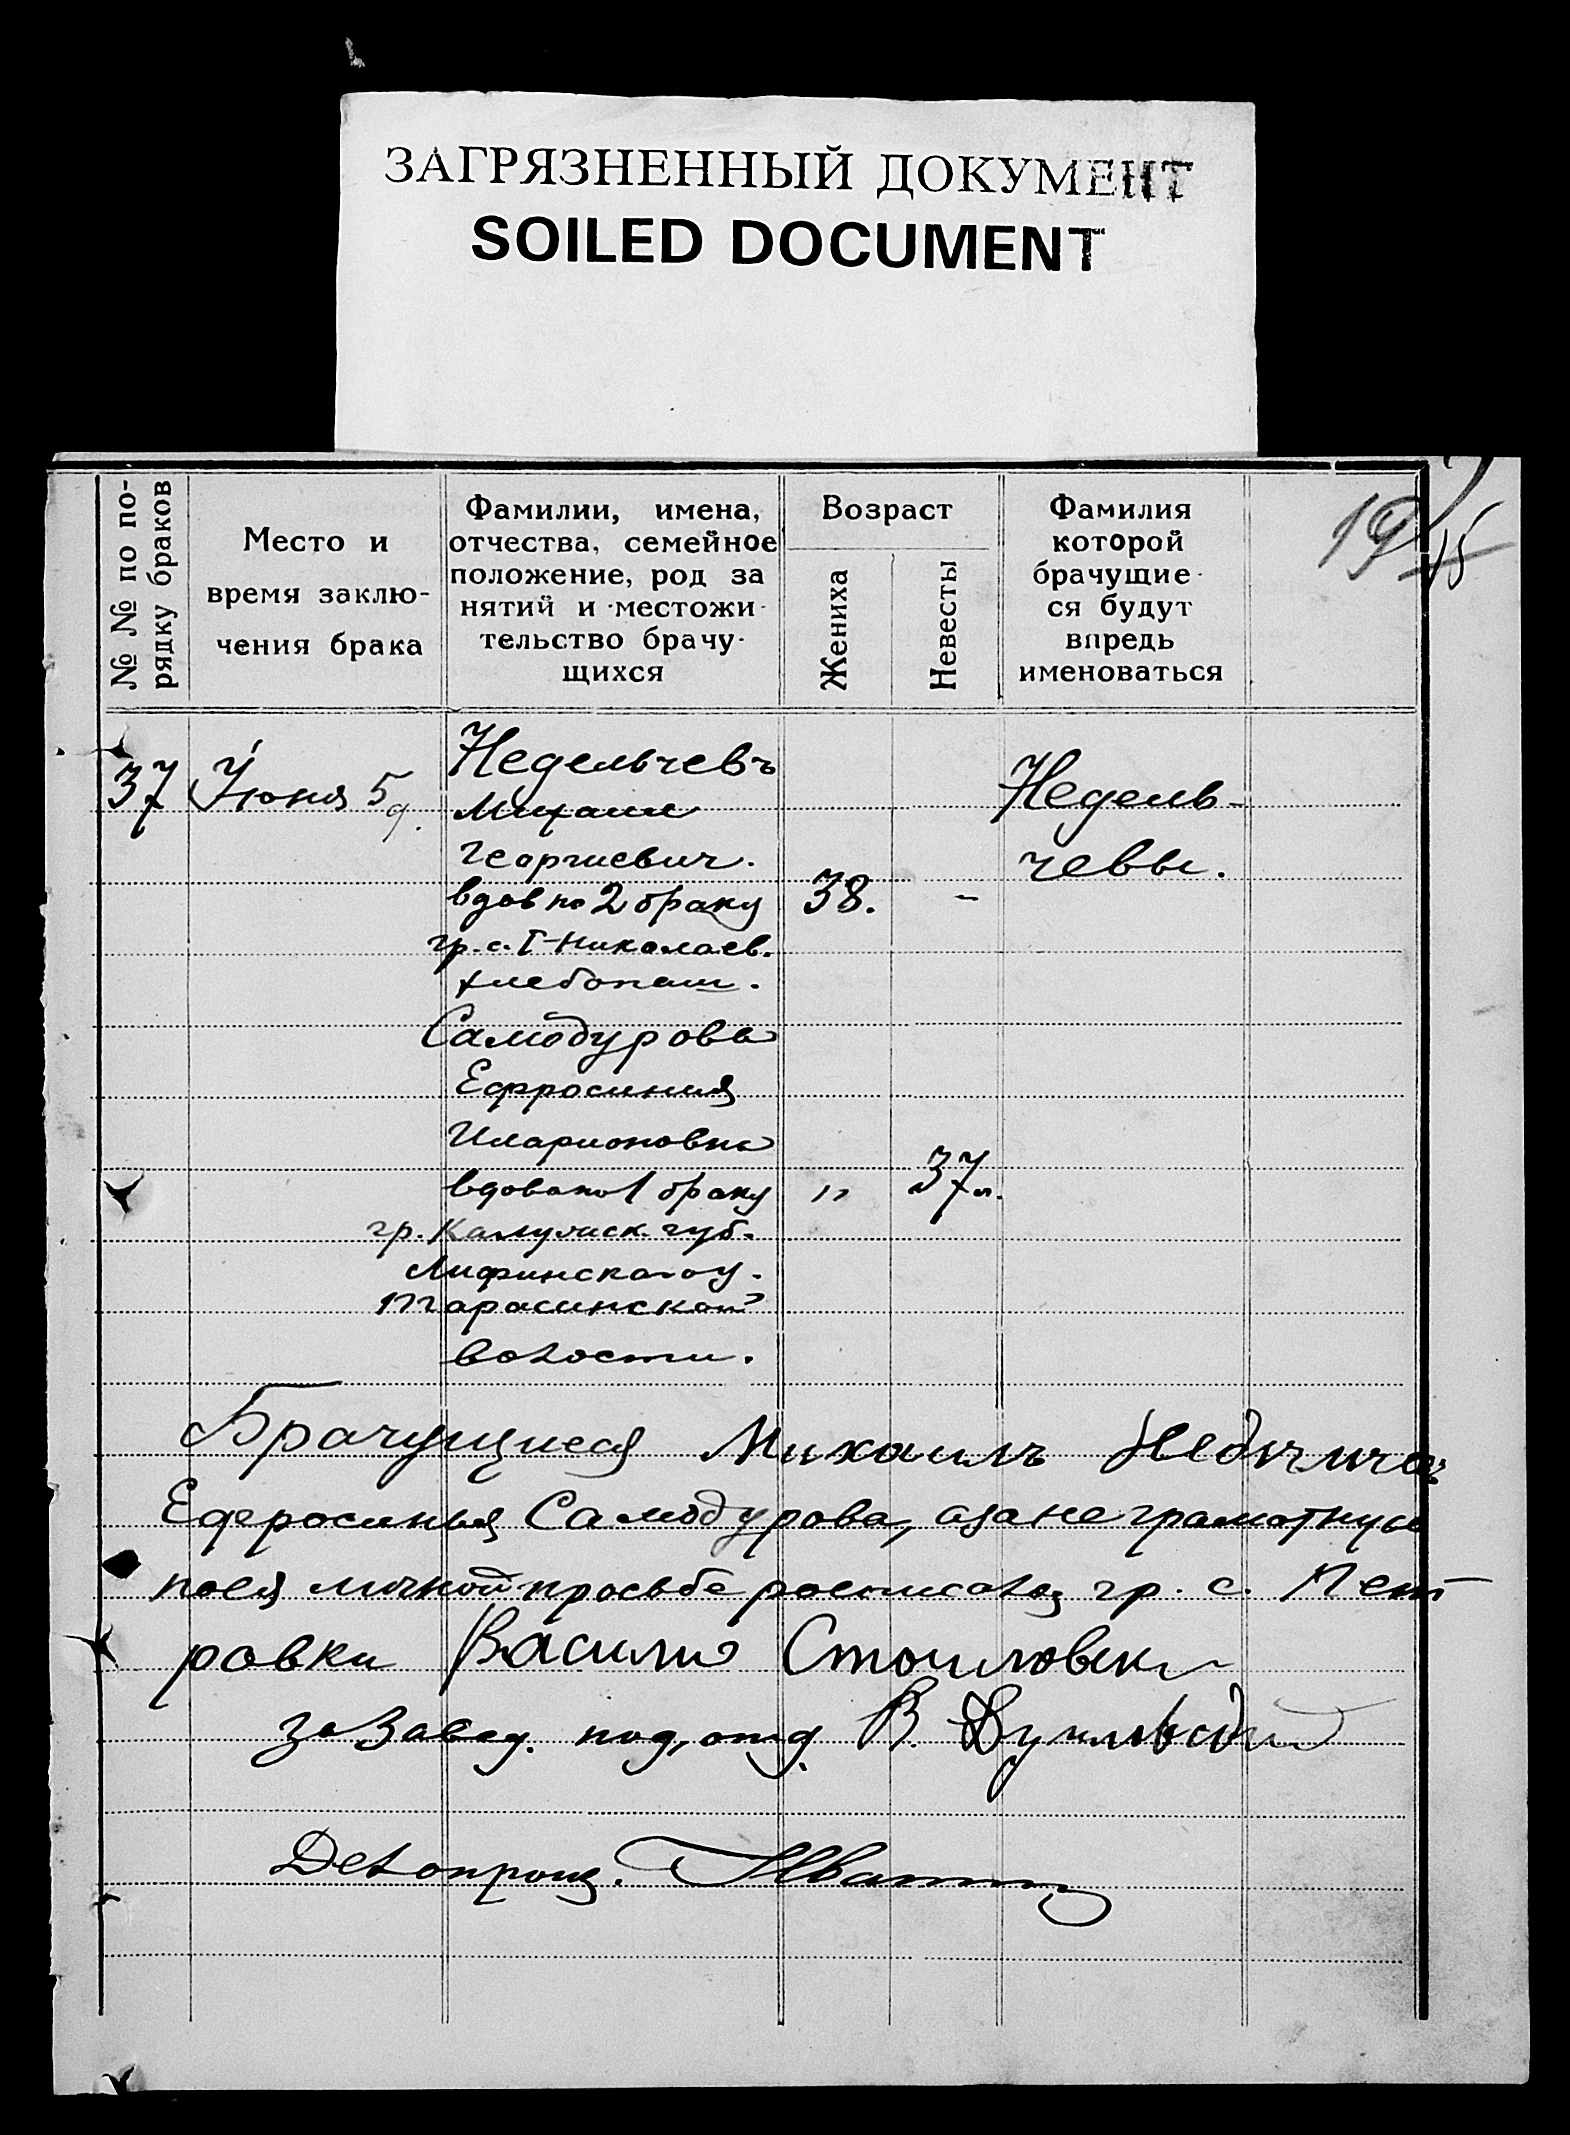 ЗАГРЯЗНЕННЫЙ ДОКУМЕНТ
SOILED DOCUMENT
19
15
№ № по по-
рядку браков
Место и
время заклю-
чения брака
Фамилии, имена,
отчества, семейное
положение, род за
нятий и местожи-
тельство брачу-
щихся
Возраст
Жениха
Невесты
Фамилия
которой
брачущие-
ся будут
впредь
именоваться
37
Июня 5 д.
Недельчевъ
Михаил
Георгиевич.
вдов по 2 браку
гр. с. Г-Николаев.
хлебопаш.
38.
-
Недель-
чевы.
Самодурова
Ефросиния
Иларионовна
вдова по 1 браку
"
37 л.
гр. Калужск. губ.
у.
Тарасинской
волости.
Брачущиеся Михаилъ
Ефросинья Самодурова, а за не грамотную
по ея личной просьбе росписался гр. с. Пет
ровки Василий
за Завед. под, отд. В.
Делопроиз.